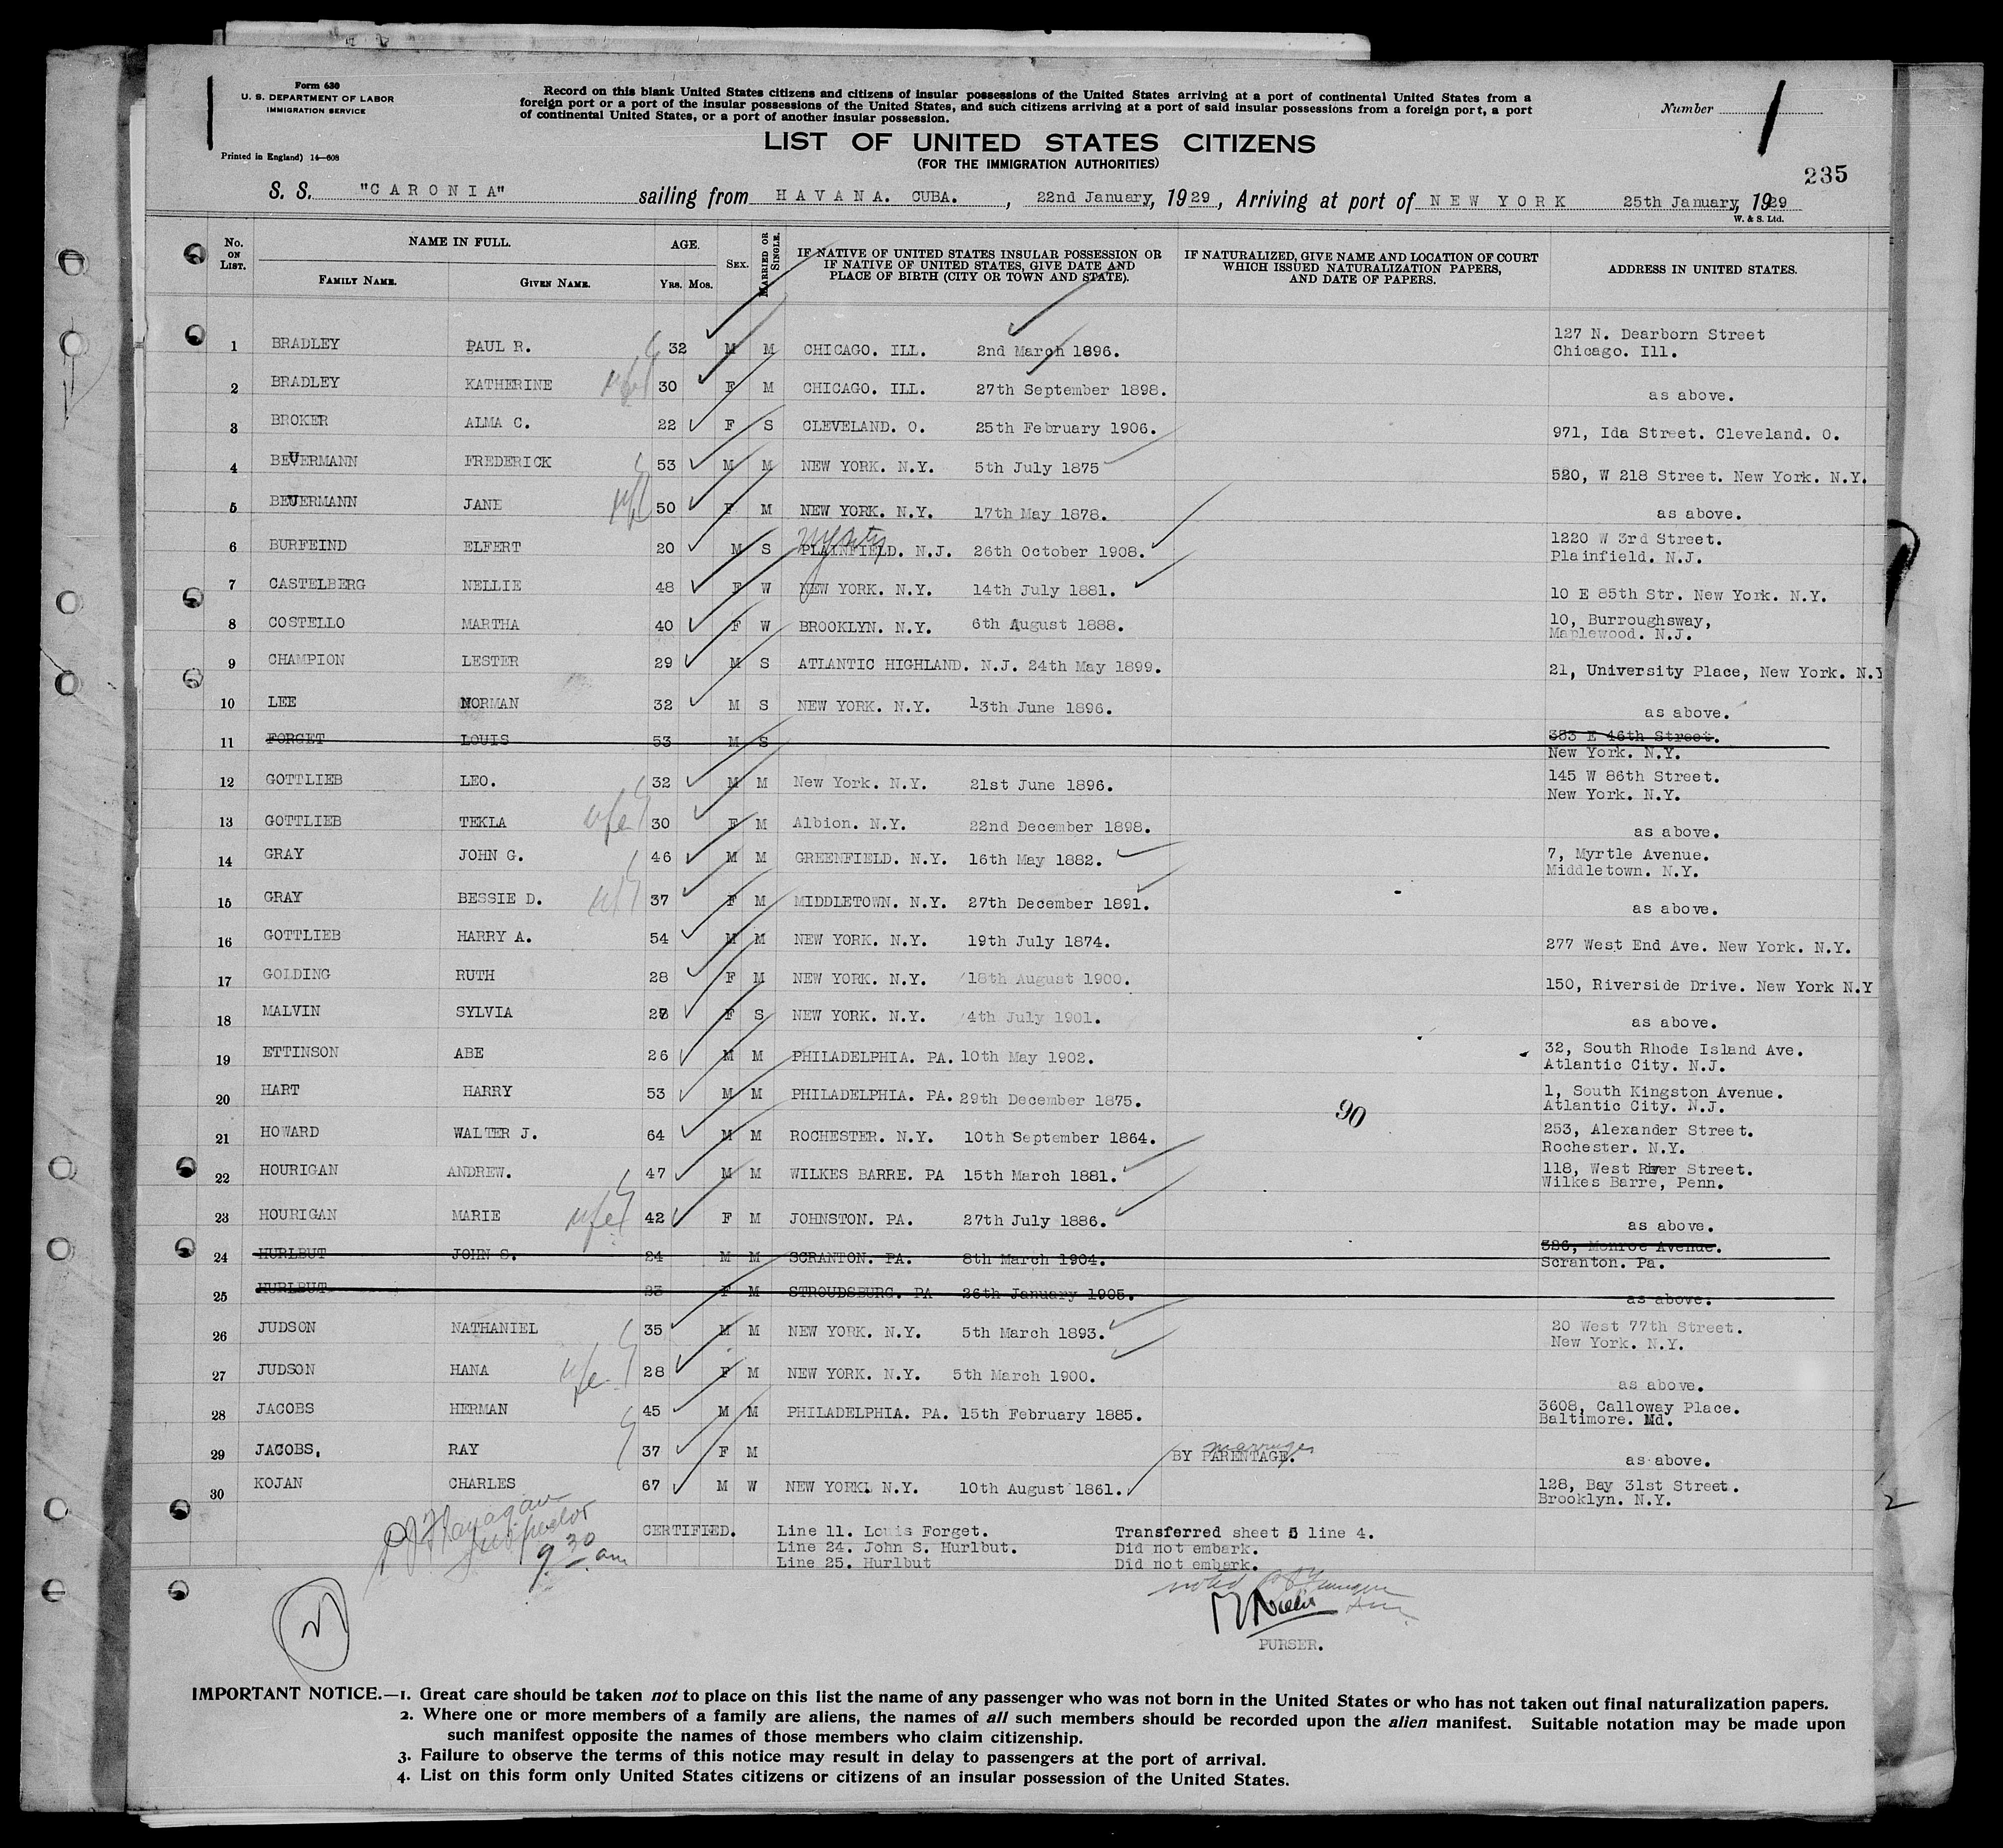 Form 630
U. S. DEPARTMENT OF LABOR
IMMIGRATION SERVICE
Printed in England) 14—608
Record on this blank United States citizens and citizens of insular possessions of the United States arriving at a port of continental United States from a
foreign port or a port of the insular possessions of the United States, and such citizens arriving at a port of said insular possessions from a foreign port, a port
of continental United States, or a port of another insular possession.
Number
LIST OF UNITED STATES CITIZENS
(FOR THE IMMIGRATION AUTHORITIES)
235
S. S. "CARONIA" sailing from HAVANA. CUBA. , 22nd January, 1929, Arriving at port of NEW YORK 25th January, 1929
W. & S. Ltd.
No. ON LIST. NAME IN FULL. FAMILY NAME. GIVEN NAME. AGE. YRS. MOS. SEX. MARRIED OR SINGLE. IF NATIVE OF UNITED STATES INSULAR POSSESSION OR IF NATIVE OF UNITED STATES, GIVE DATE AND PLACE OF BIRTH (CITY OR TOWN AND STATE). IF NATURALIZED, GIVE NAME AND LOCATION OF COURT WHICH ISSUED NATURALIZATION PAPERS, AND DATE OF PAPERS. ADDRESS IN UNITED STATES.
1 BRADLEY PAUL R. 32 M M CHICAGO. ILL. 2nd March 1896. 127 N. Dearborn Street
Chicago. Ill.
2 BRADLEY KATHERINE wife 30 F M CHICAGO. ILL. 27th September 1898. as above.
3 BROKER ALMA C. 22 F S CLEVELAND. O. 25th February 1906. 971, Ida Street. Cleveland. O.
4 BEUERMANN FREDERICK 53 M M NEW YORK. N.Y. 5th July 1875 520, W 218 Street. New York. N.Y.
5 BEUERMANN JANE wife 50 F M NEW YORK. N.Y. 17th May 1878. as above.
6 BURFEIND ELFERT 20 M S PLAINFIELD. N.J. 26th October 1908. 1220 W 3rd Street.
Plainfield. N.J.
7 CASTELBERG NELLIE 48 F W NEW YORK. N.Y. 14th July 1881. 10 E 85th Str. New York. N.Y.
8 COSTELLO MARTHA 40 F W BROOKLYN. N.Y. 6th August 1888. 10, Burroughsway,
Maplewood. N.J.
9 CHAMPION LESTER 29 M S ATLANTIC HIGHLAND. N.J. 24th May 1899. 21, University Place, New York. N.Y
10 LEE NORMAN 32 M S NEW YORK. N.Y. 13th June 1896. as above.
11 FORGET LOUIS 53 M S 353 E 46th Street.
New York. N.Y.
12 GOTTLIEB LEO. 32 M M New York. N.Y. 21st June 1896. 145 W 86th Street.
New York. N.Y.
13 GOTTLIEB TEKLA wife 30 F M Albion. N.Y. 22nd December 1898. as above.
14 GRAY JOHN G. 46 M M GREENFIELD. N.Y. 16th May 1882. 7, Myrtle Avenue.
Middletown. N.Y.
15 GRAY BESSIE D. wf 37 F M MIDDLETOWN. N.Y. 27th December 1891. as above.
16 GOTTLIEB HARRY A. 54 M M NEW YORK. N.Y. 19th July 1874. 277 West End Ave. New York. N.Y.
17 GOLDING RUTH 28 F M NEW YORK. N.Y. 18th August 1900. 150, Riverside Drive. New York N.Y
18 MALVIN SYLVIA F S NEW YORK. N.Y. 4th July 1901. as above.
19 ETTINSON ABE 26 M M PHILADELPHIA. PA. 10th May 1902. 32, South Rhode Island Ave.
Atlantic City. N.J.
20 HART HARRY 53 M M PHILADELPHIA. PA. 29th December 1875. 1, South Kingston Avenue.
Atlantic City. N.J.
90
21 HOWARD WALTER J. 64 M M ROCHESTER. N.Y. 10th September 1864. 253, Alexander Street.
Rochester. N.Y.
22 HOURIGAN ANDREW. 47 M M WILKES BARRE. PA 15th March 1881. 118, West River Street.
Wilkes Barre, Penn.
23 HOURIGAN MARIE wife 42 F M JOHNSTON. PA. 27th July 1886. as above.
24 HURLBUT JOHN S. 24 M M SCRANTON. PA. 8th March 1904. 326, Monroe Avenue.
Scranton. Pa.
25 HURLBUT 23 F M STROUDSBURG. PA 26th January 1905. as above.
26 JUDSON NATHANIEL 35 M M NEW YORK. N.Y. 5th March 1893. 20 West 77th Street.
New York. N.Y.
27 JUDSON HANA wife 28 F M NEW YORK. N.Y. 5th March 1900. as above.
28 JACOBS HERMAN 45 M M PHILADELPHIA. PA. 15th February 1885. 3608, Calloway Place.
Baltimore. Md.
29 JACOBS, RAY 37 F M BY PARENTAGE. marriage as above.
30 KOJAN CHARLES 67 M W NEW YORK. N.Y. 10th August 1861. 128, Bay 31st Street.
Brooklyn. N.Y.
2
Inspector
9 30 am
CERTIFIED. Line 11. Louis Forget. Transferred sheet 5 line 4.
Line 24. John S. Hurlbut. Did not embark.
Line 25. Hurlbut Did not embark.
noted
PURSER.
IMPORTANT NOTICE.—1. Great care should be taken not to place on this list the name of any passenger who was not born in the United States or who has not taken out final naturalization papers.
2. Where one or more members of a family are aliens, the names of all such members should be recorded upon the alien manifest. Suitable notation may be made upon
such manifest opposite the names of those members who claim citizenship.
3. Failure to observe the terms of this notice may result in delay to passengers at the port of arrival.
4. List on this form only United States citizens or citizens of an insular possession of the United States.